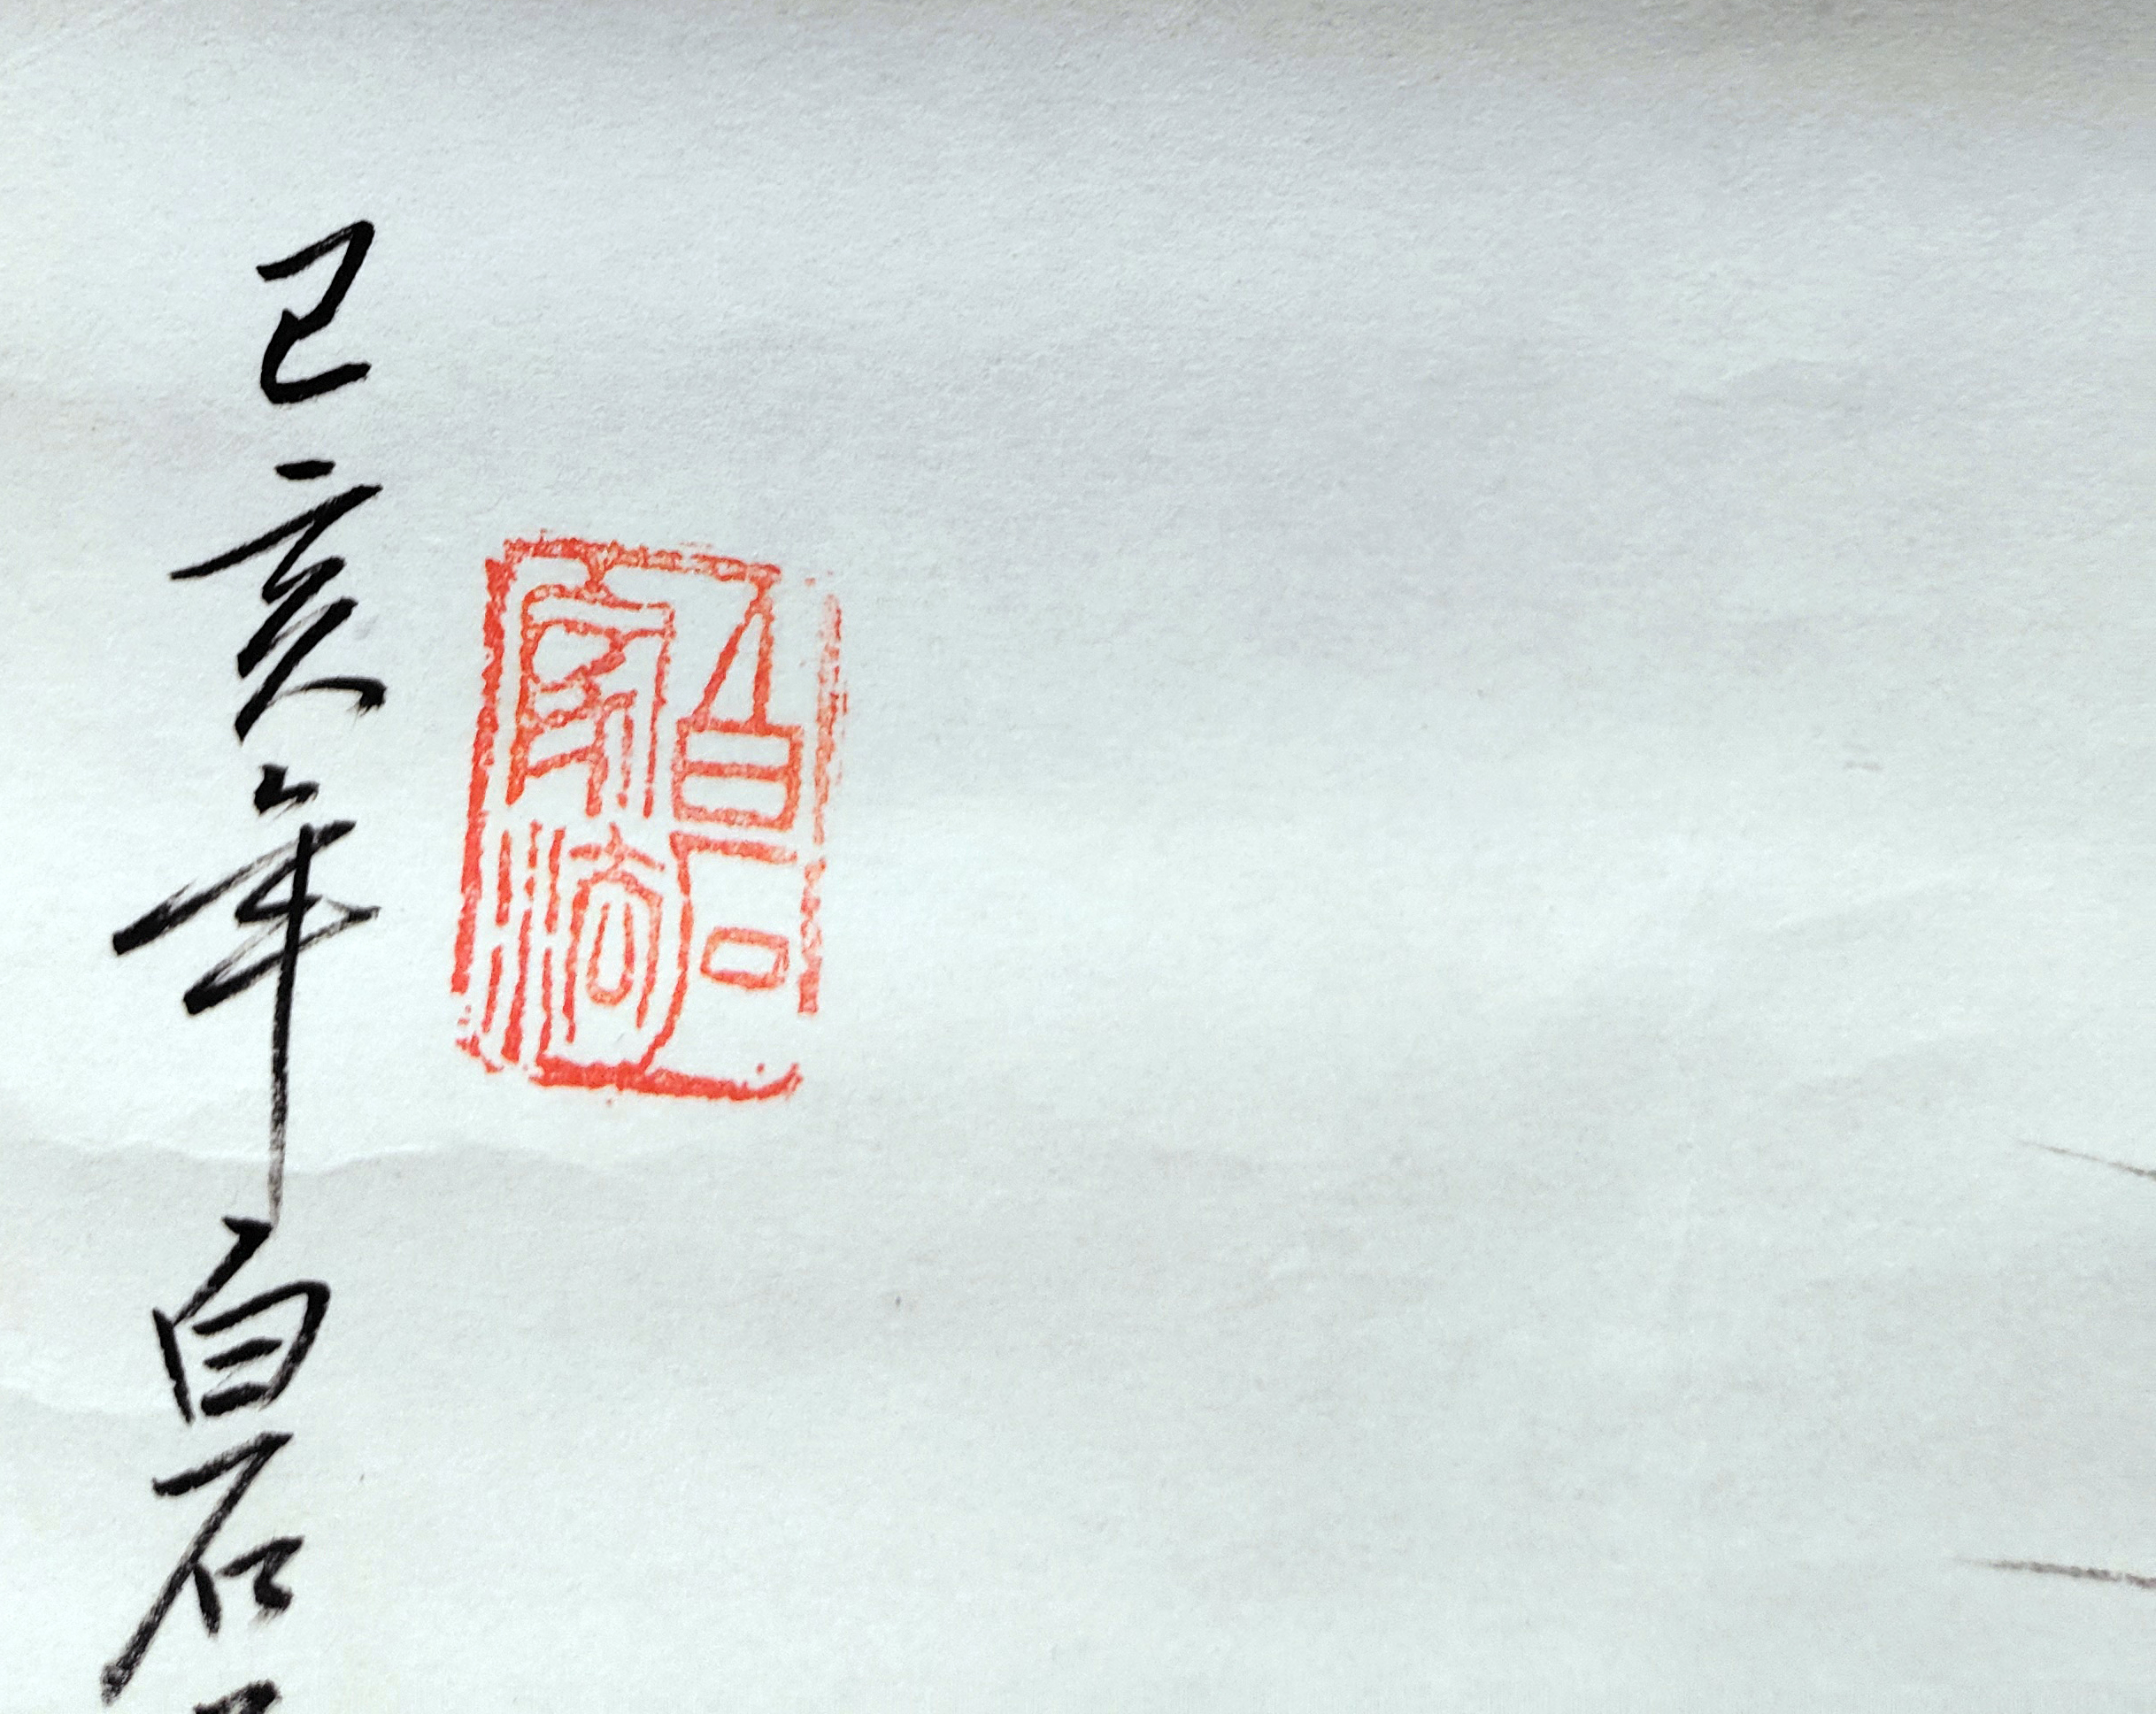 己亥年白石
白石